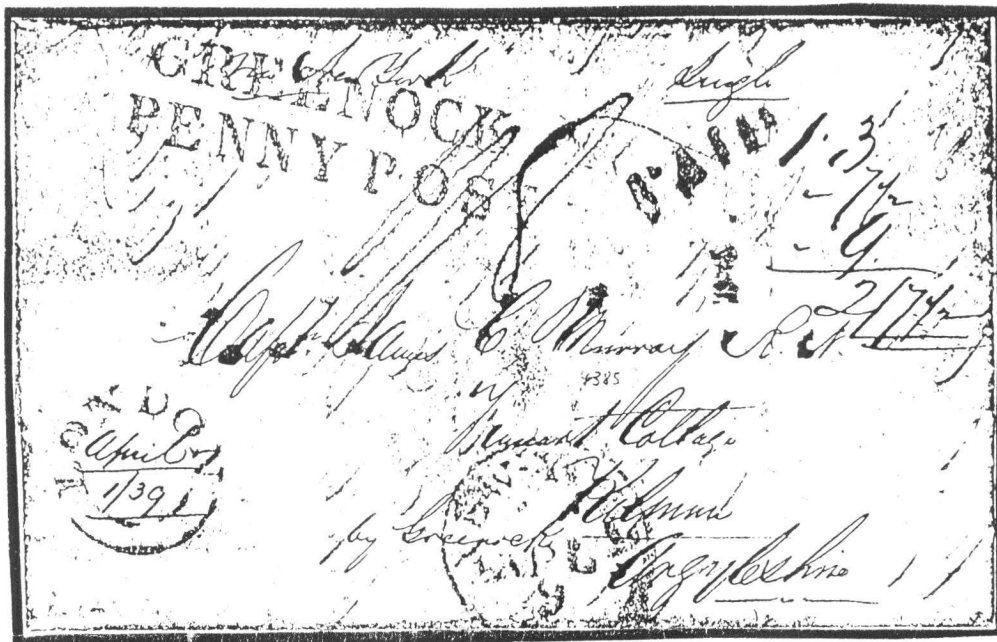 GREENOCK
PENNY POS
New York
Single
PAID
1.3
- 7½
- 9
2/7½
Captn James C Murray R. N.
4385
of
Cottage
Kilmun
by Greenock
Argyleshire
LONDO
April
1/39